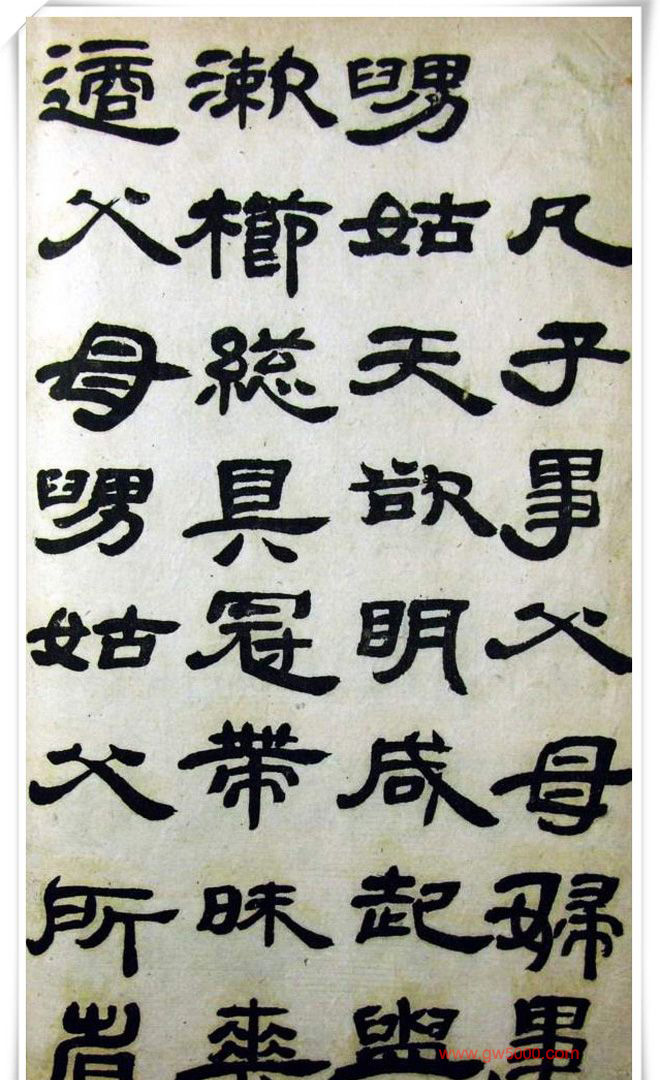 凡子事父母婦事
舅姑天欲明咸起盥
漱櫛総具冠帶昧爽
適父母舅姑父所省
www.gw5000.com